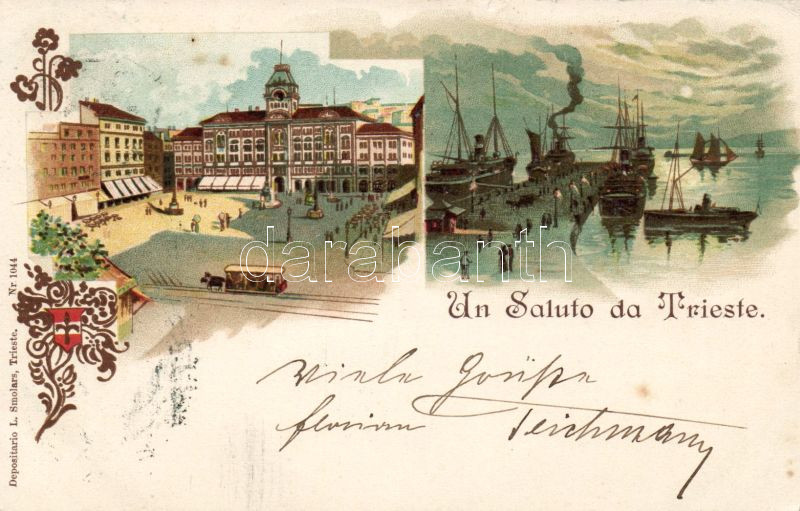 Un Saluto da Trieste.
Viele Grüße
florian Teichmann
Depositario L. Smolars, Trieste. Nr. 1044
darabanth